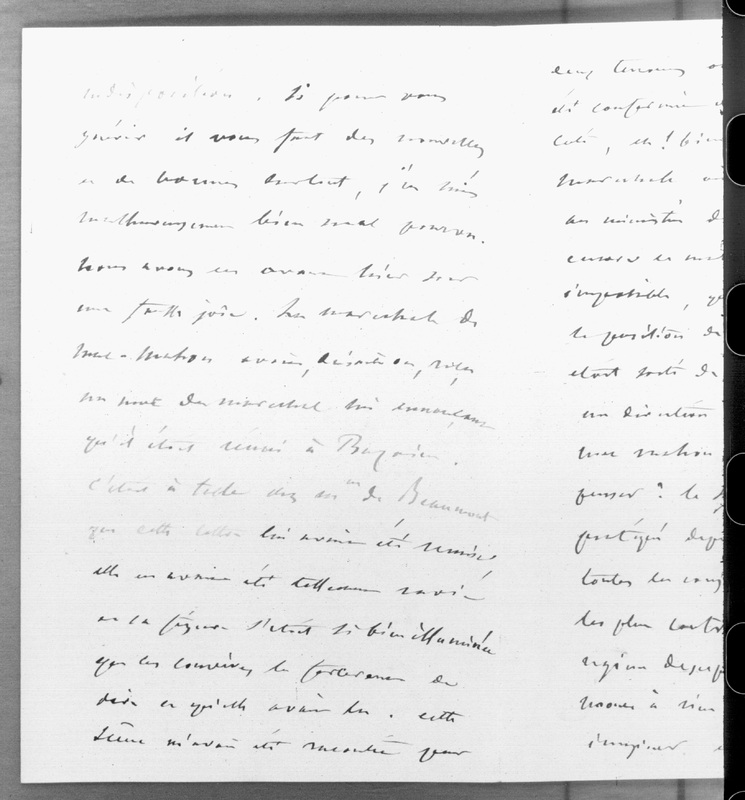 indisposition. Si pour vous
guérir il vous faut des nouvelles
et de bonnes surtout, j'en suis
malheureusement bien mal pourvu.
Nous avons eu avant hier soir
une fausse joie. La maréchale de
Mac-Mahon avait, disait-on, reçu
un mot du maréchal lui annonçant
qu'il était réuni à Bazaine.
C'était à table chez Mme de Beaumont
que cette lettre lui avait été remise,
elle en avait été tellement ravie
et sa figure s'était si bien illuminée
que les convives la forcèrent de
dire ce qu'elle avait lu. Cette
scène m'avait été racontée par
été confirmé
côté, eh! bien
maréchale
au ministère d
encore en
impossible,
la position de
était sorti de
un direction
mac mahon
penser? le
protégé depu
toutes les
les plus contr
région depu
à rien
imaginer